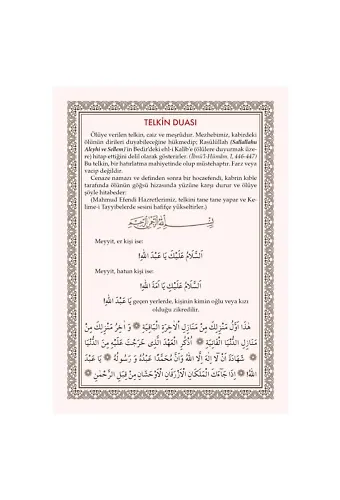 TELKİN DUASI
Ölüye verilen telkin, caiz ve meşrûdur. Mezhebimiz, kabirdeki
ölünün dirileri duyabileceğine hükmedip; Rasûlüllâh (Sallallahu
Aleyhi ve Sellem)'in Bedir'deki ehl-i Kalîb'e (ölülere duyurmak üze-
re) hitap ettiğini delil olarak gösterirler. (İbnü'l-Hümâm, I, 446-447)
Bu telkin, bir hatırlatma mahiyetinde olup müstehaptır. Farz veya
vacip değildir.
Cenaze namazı ve definden sonra bir hocaefendi, kabrin kıble
tarafında ölünün göğsü hizasında yüzüne karşı durur ve ölüye
şöyle hitabeder:
(Mahmud Efendi Hazretlerimiz, telkini tane tane yapar ve Ke-
lime-i Tayyibelerde sesini hafifçe yükseltirler.)
بِسْمِ اللّٰهِ الرَّحْمٰنِ الرَّحِيمِ
Meyyit, er kişi ise:
اَلسَّلَامُ عَلَيْكَ يَا عَبْدَ اللّٰهِ!
Meyyit, hatun kişi ise:
اَلسَّلَامُ عَلَيْكِ يَا اَمَةَ اللّٰهِ!
يَا عَبْدَ اللّٰهِ! geçen yerlerde, kişinin kimin oğlu veya kızı
olduğu zikredilir.
هٰذَا اَوَّلُ مَنْزِلِكَ مِنْ مَنَازِلِ الْاٰخِرَةِ الْبَاقِيَةِ ❁ وَ اٰخِرُ مَنْزِلِكَ مِنْ
مَنَازِلِ الدُّنْيَا الْفَانِيَةِ ❁ اُذْكُرِ الْعَهْدَ الَّذِى خَرَجْتَ عَلَيْهِ مِنَ الدُّنْيَا
❁ شَهَادَةَ اَنْ لَا اِلٰهَ اِلَّا اللّٰهُ وَاَنَّ مُحَمَّدًا عَبْدُهُ وَ رَسُولُهُ ❁ يَا عَبْدَ
اللّٰهِ! ❁ اِذَا جَاءَكَ الْمَلَكَانِ الْاَزْرَقَانِ الْاَوْحَشَانِ مِنْ قِبَلِ الرَّحْمٰنِ ❁